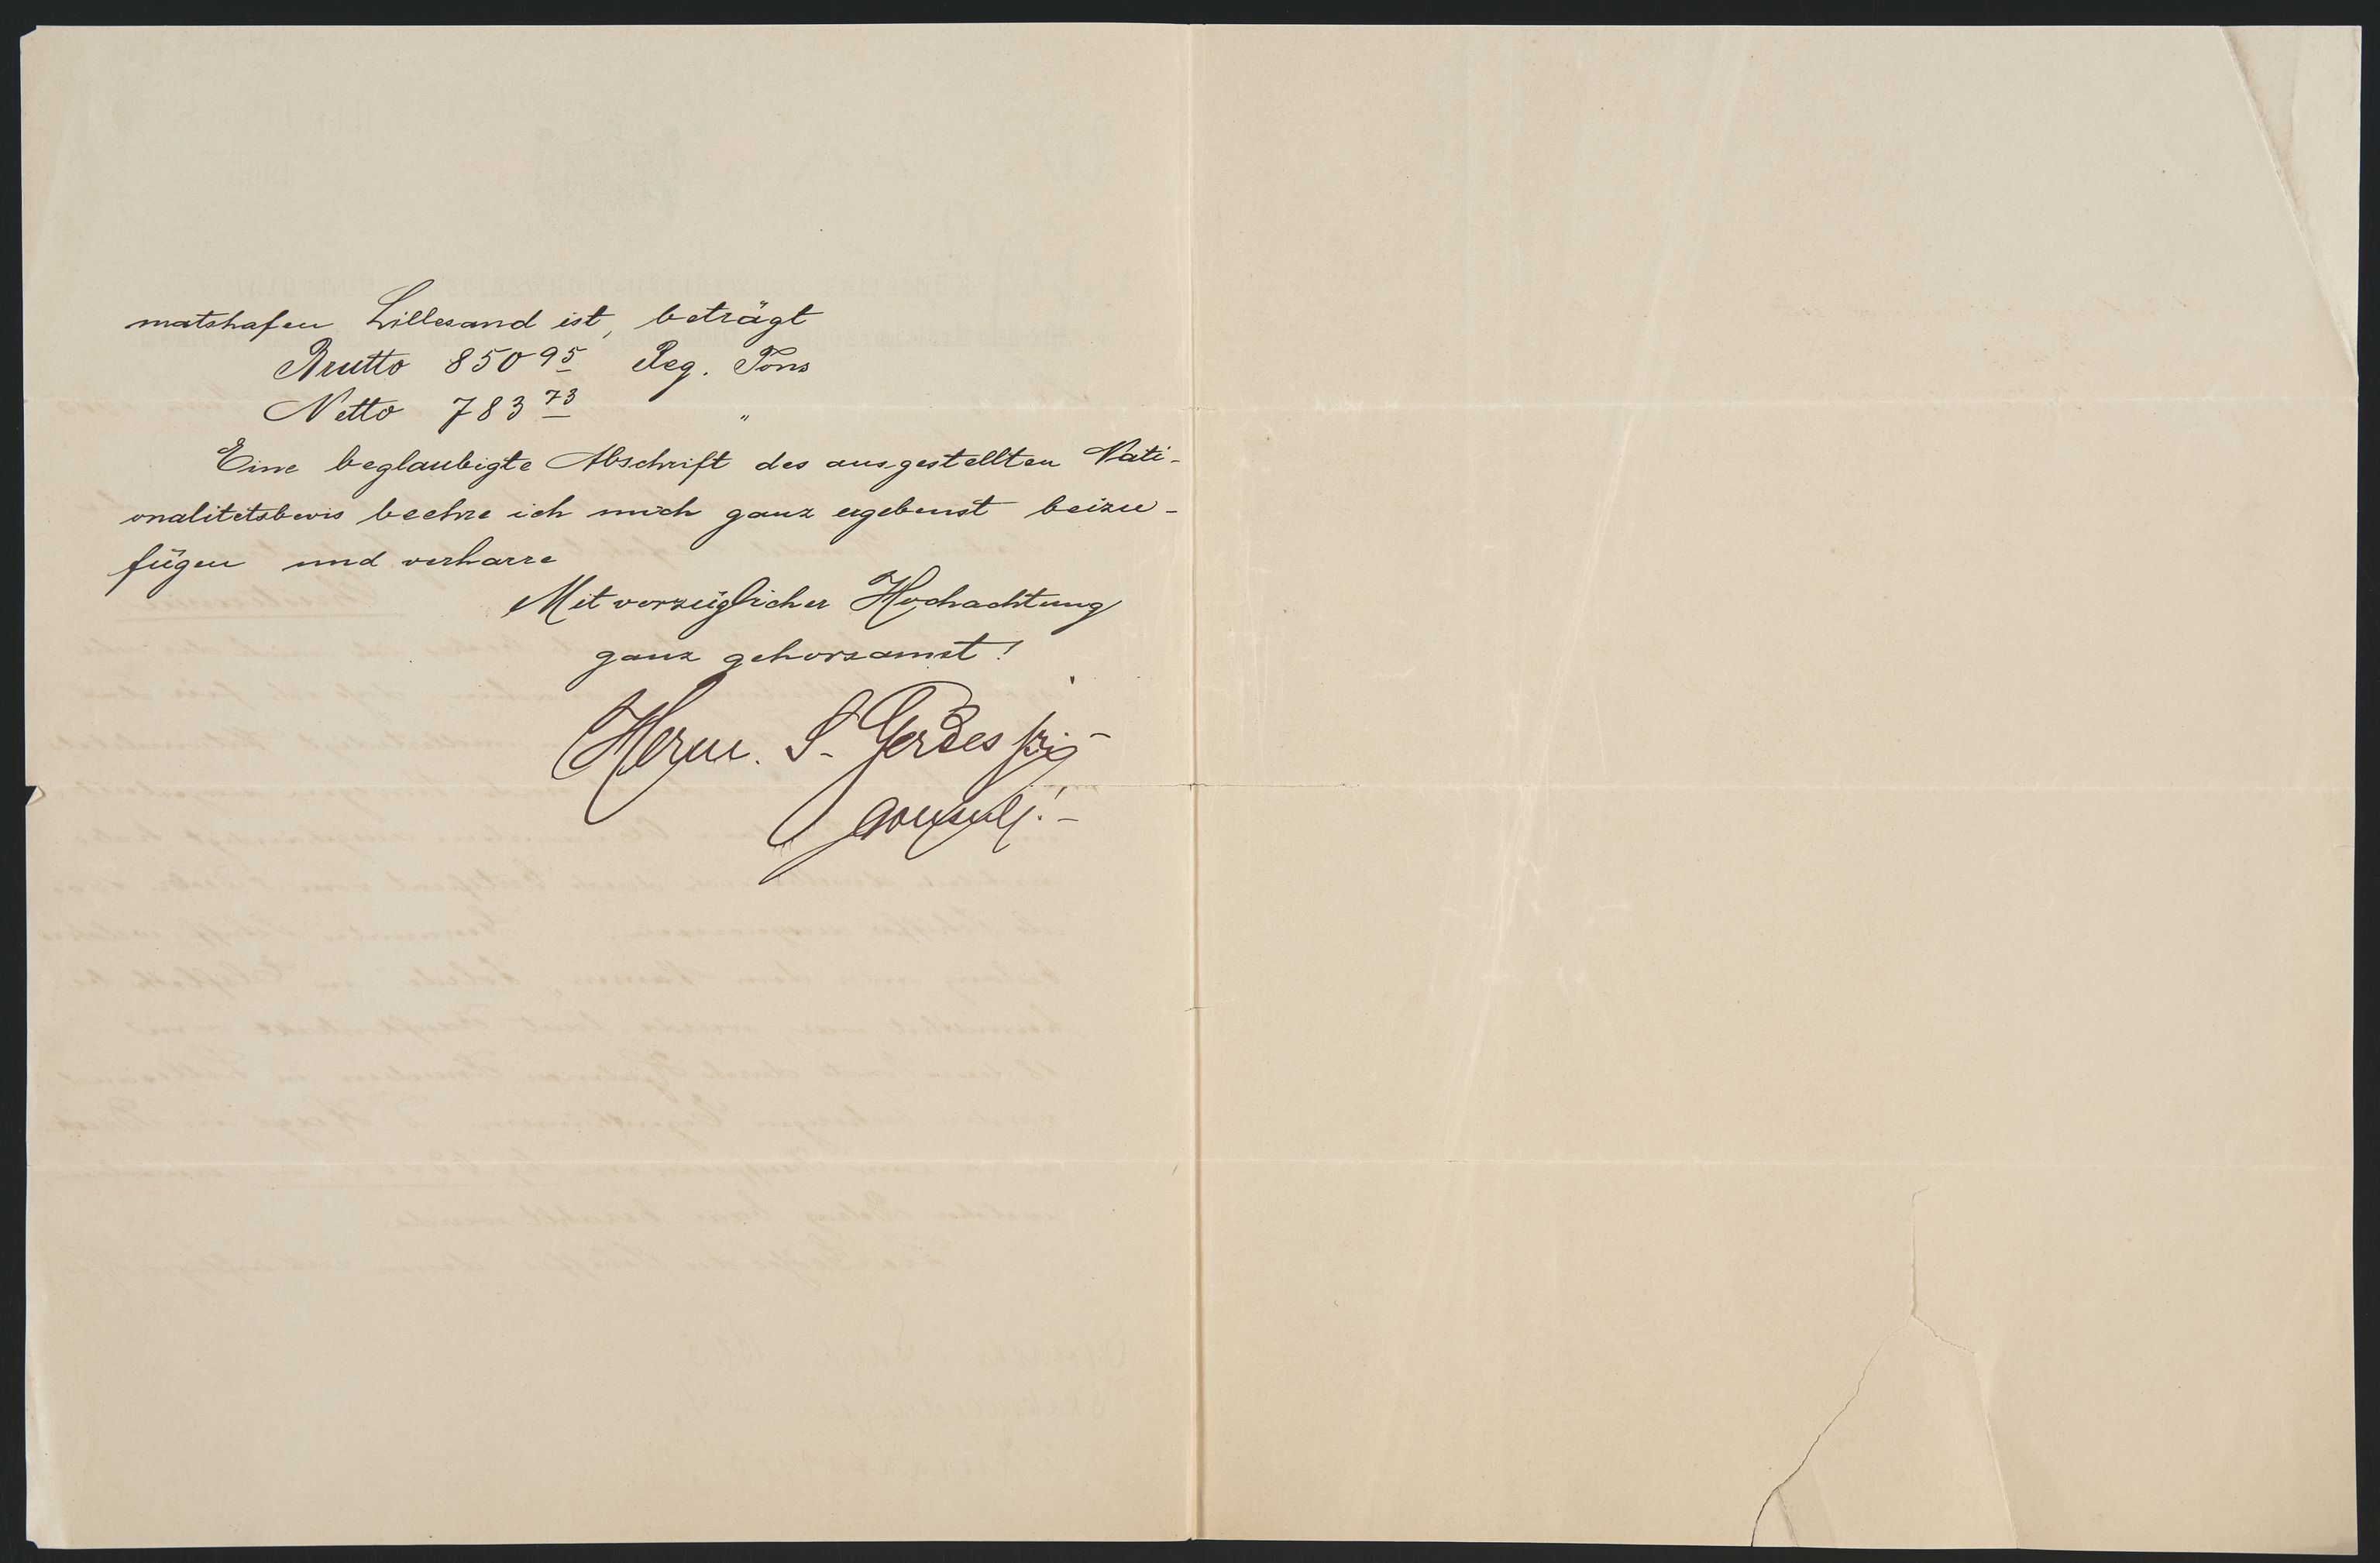 matshafen Lillesand ist, beträgt
Brutto 850 95 Reg. Tons
Netto 783 73 "
Eine beglaubigte Abschrift des ausgestellten Nati-
onalitetsbevis beehre ich mich ganz ergebenst beizu-
fügen und verharre
Mit vorzüglicher Hochachtung
ganz gehorsamst!
Herm. S. Gerdes
Consul!